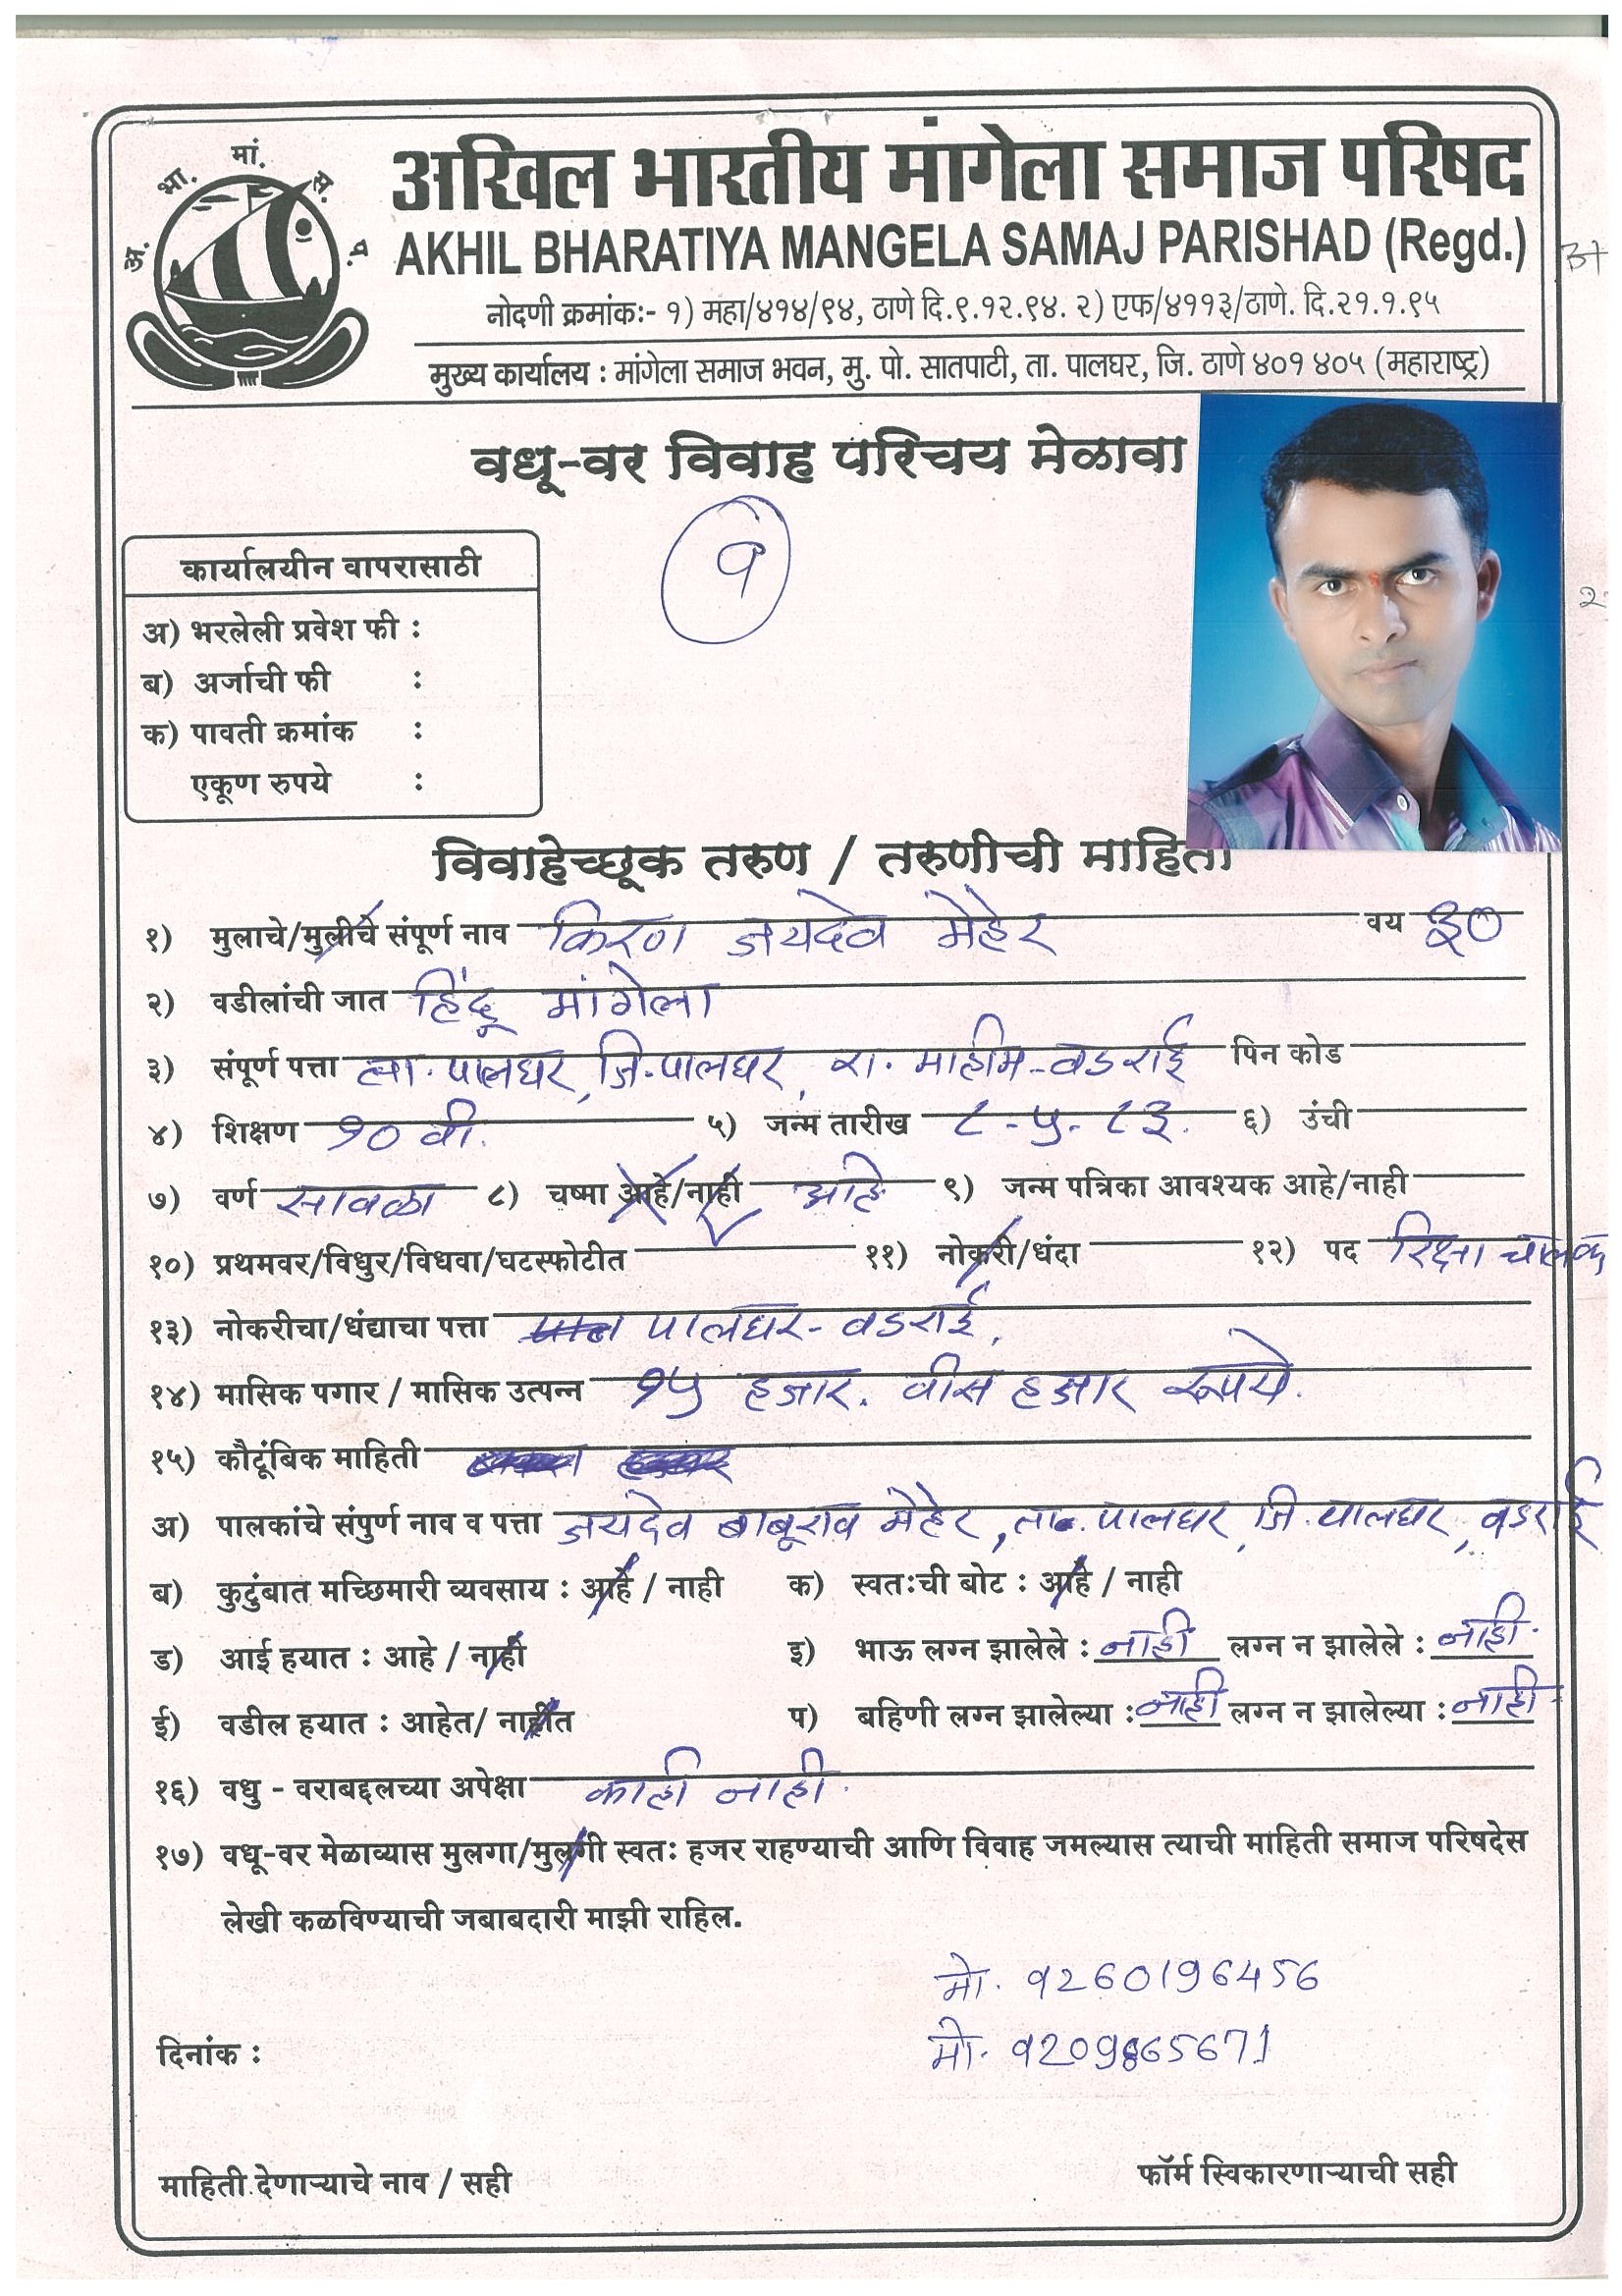 अ. भा. मां. स. प.
अखिल भारतीय मांगेला समाज परिषद
AKHIL BHARATIYA MANGELA SAMAJ PARISHAD (Regd.)
नोदणी क्रमांकः- १) महा/४१४/९४, ठाणे दि.९.१२.९४. २) एफ/४११३/ठाणे. दि.२१.१.९५
मुख्य कार्यालय : मांगेला समाज भवन, मु. पो. सातपाटी, ता. पालघर, जि. ठाणे ४०१ ४०५ (महाराष्ट्र)
वधू-वर विवाह परिचय मेळावा
कार्यालयीन वापरासाठी
अ) भरलेली प्रवेश फी :
ब) अर्जाची फी :
क) पावती क्रमांक :
एकूण रुपये :
विवाहेच्छूक तरुण / तरुणीची माहिती
१) मुलाचे/मुलीचे संपूर्ण नाव किरण जयदेव मेहेर वय ३०
२) वडीलांची जात हिंदू मांगेला
३) संपूर्ण पत्ता ता. पालघर, जि. पालघर, रा. माहीम-वडराई पिन कोड
४) शिक्षण १० वी. ५) जन्म तारीख ८-५-८३. ६) उंची
७) वर्ण सावळा ८) चष्मा आहे/नाही आहे ९) जन्म पत्रिका आवश्यक आहे/नाही
१०) प्रथमवर/विधुर/विधवा/घटस्फोटीत ११) नोकरी/धंदा १२) पद रिक्षा चालक
१३) नोकरीचा/धंद्याचा पत्ता पालघर-वडराई.
१४) मासिक पगार / मासिक उत्पन्न १५ हजार. वीस हजार रूपये.
१५) कौटूंबिक माहिती
अ) पालकांचे संपुर्ण नाव व पत्ता जयदेव बाबूराव मेहेर, ता. पालघर, जि. पालघर, वडराई
ब) कुटुंबात मच्छिमारी व्यवसाय : आहे / नाही क) स्वतःची बोट : आहे / नाही
ड) आई हयात : आहे / नाही इ) भाऊ लग्न झालेले : नाही लग्न न झालेले : नाही.
ई) वडील हयात : आहेत/ नाहीत प) बहिणी लग्न झालेल्या : नाही लग्न न झालेल्या : नाही.
१६) वधु - वराबद्दलच्या अपेक्षा काही नाही.
१७) वधू-वर मेळाव्यास मुलगा/मुलगी स्वतः हजर राहण्याची आणि विवाह जमल्यास त्याची माहिती समाज परिषदेस
लेखी कळविण्याची जबाबदारी माझी राहिल.
मो. 9260196456
दिनांक : मो. 9209865671
माहिती देणाऱ्याचे नाव / सही फॉर्म स्विकारणाऱ्याची सही